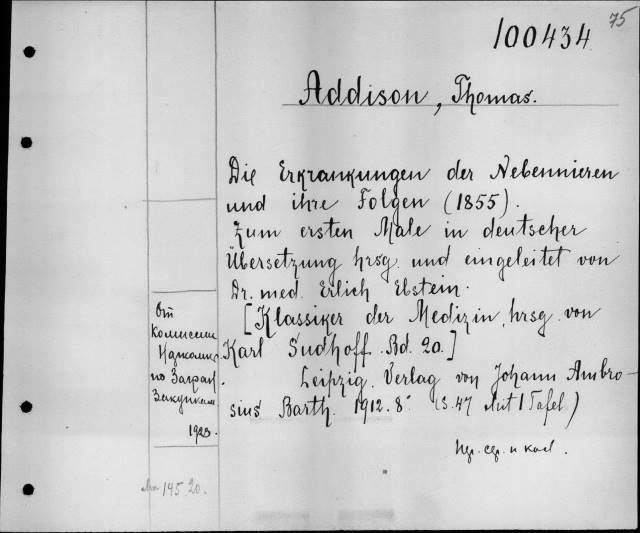 75
100434
Addison, Thomas.
Die Erkrankungen der Nebennieren
und ihre Folgen (1855).
Zum ersten Male in deutscher
Übersetzung hrsg. und eingeleitet von
Dr. med. Erlich Ebstein.
[Klassiker der Medizin, hrsg. von
Karl Sudhoff. Bd. 20.]
Leipzig. Verlag von Johann Ambro-
sius Barth. 1912. 8°. (S. 47 Mit 1 Tafel.)
От
Комиссии
по Загран.
Закупкам
1923.
145.20.